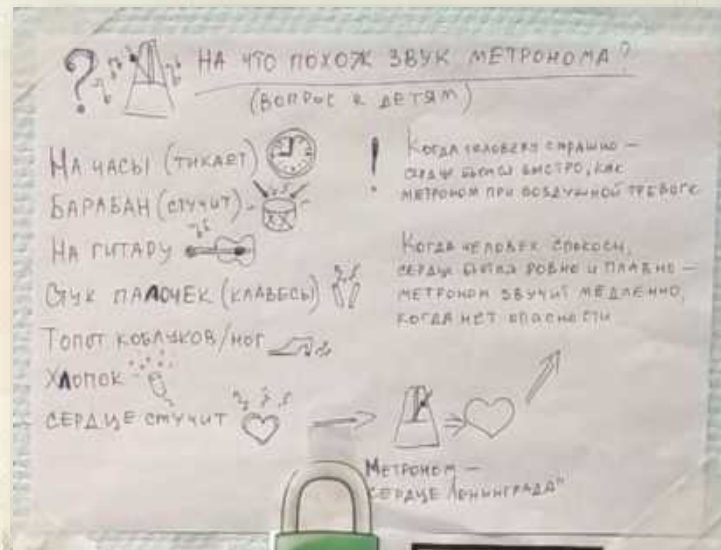 НА ЧТО ПОХОЖ ЗВУК МЕТРОНОМА?
(ВОПРОС К ДЕТЯМ)
НА ЧАСЫ (ТИКАЕТ)
БАРАБАН (СТУЧИТ)
НА ГИТАРУ
СТУК ПАЛОЧЕК (КЛАВЕСЫ)
ТОПОТ КАБЛУКОВ/НОГ
ХЛОПОК
СЕРДЦЕ СТУЧИТ
! КОГДА ЧЕЛОВЕКУ СТРАШНО –
СЕРДЦЕ БЬЕТСЯ БЫСТРО, КАК
МЕТРОНОМ ПРИ ВОЗДУШНОЙ ТРЕВОГЕ
КОГДА ЧЕЛОВЕК СПОКОЕН,
СЕРДЦЕ БЬЕТСЯ РОВНО И ПЛАВНО –
МЕТРОНОМ ЗВУЧИТ МЕДЛЕННО,
КОГДА НЕТ ОПАСНОСТИ
МЕТРОНОМ –
"СЕРДЦЕ ЛЕНИНГРАДА"